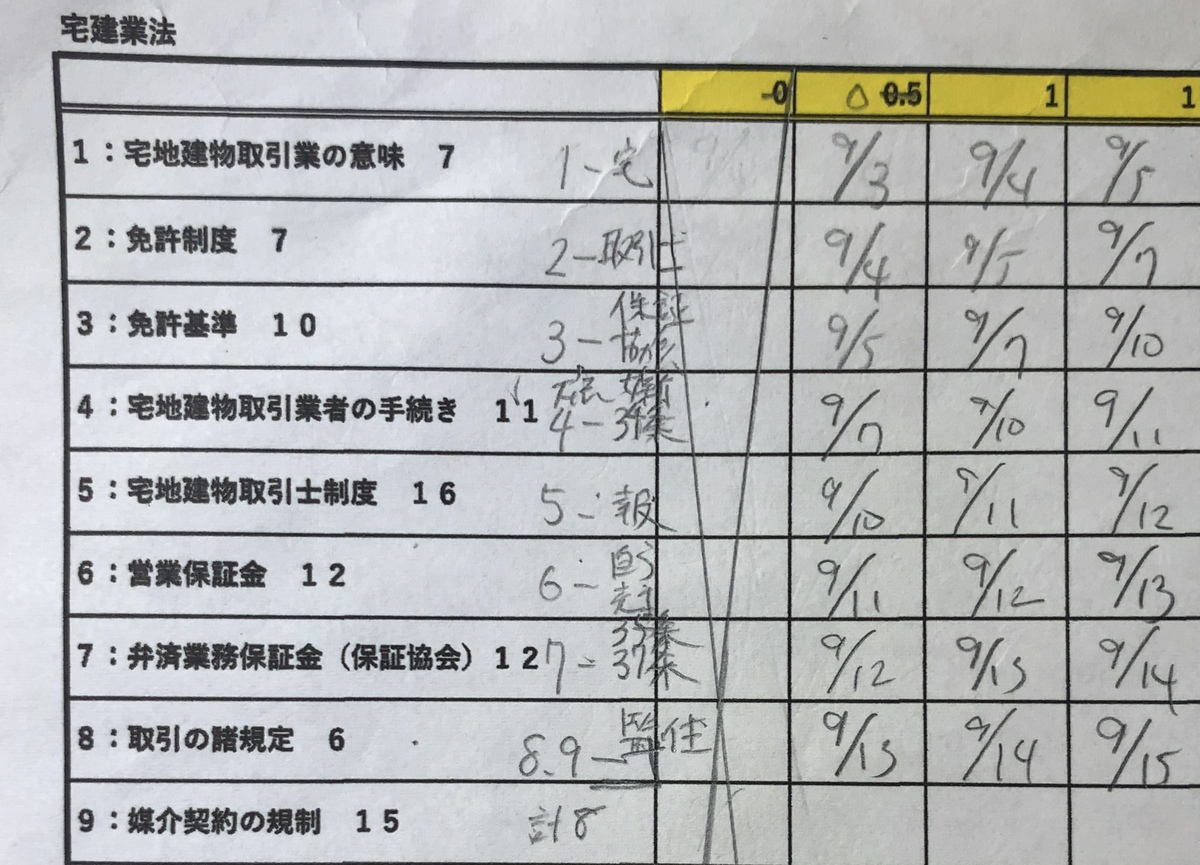 宅建業法
-0 △ 0.5 1 1
1：宅地建物取引業の意味　7 1-宅 9/3 9/4 9/5
2：免許制度　7 2-取引士 9/4 9/5 9/7
保証
3：免許基準　10 3-協会 9/5 9/7 9/10
4：宅地建物取引業者の手続き　11 4- 9/7 9/10 9/11
5：宅地建物取引士制度　16 5-報 9/10 9/11 9/12
自ら
6：営業保証金　12 6-売主 9/11 9/12 9/13
35条
7：弁済業務保証金（保証協会）12 7-37条 9/12 9/13 9/14
8：取引の諸規定　6 8.9-監 9/13 9/14 9/15
9：媒介契約の規制　15 計8